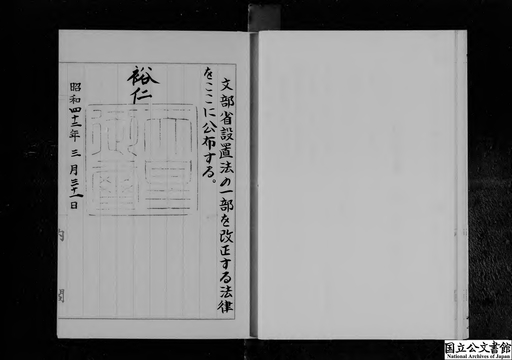 文部省設置法の一部を改正する法律
をここに公布する。
裕仁
昭和四十三年三月三十一日
内閣
国立公文書館
National Archives of Japan